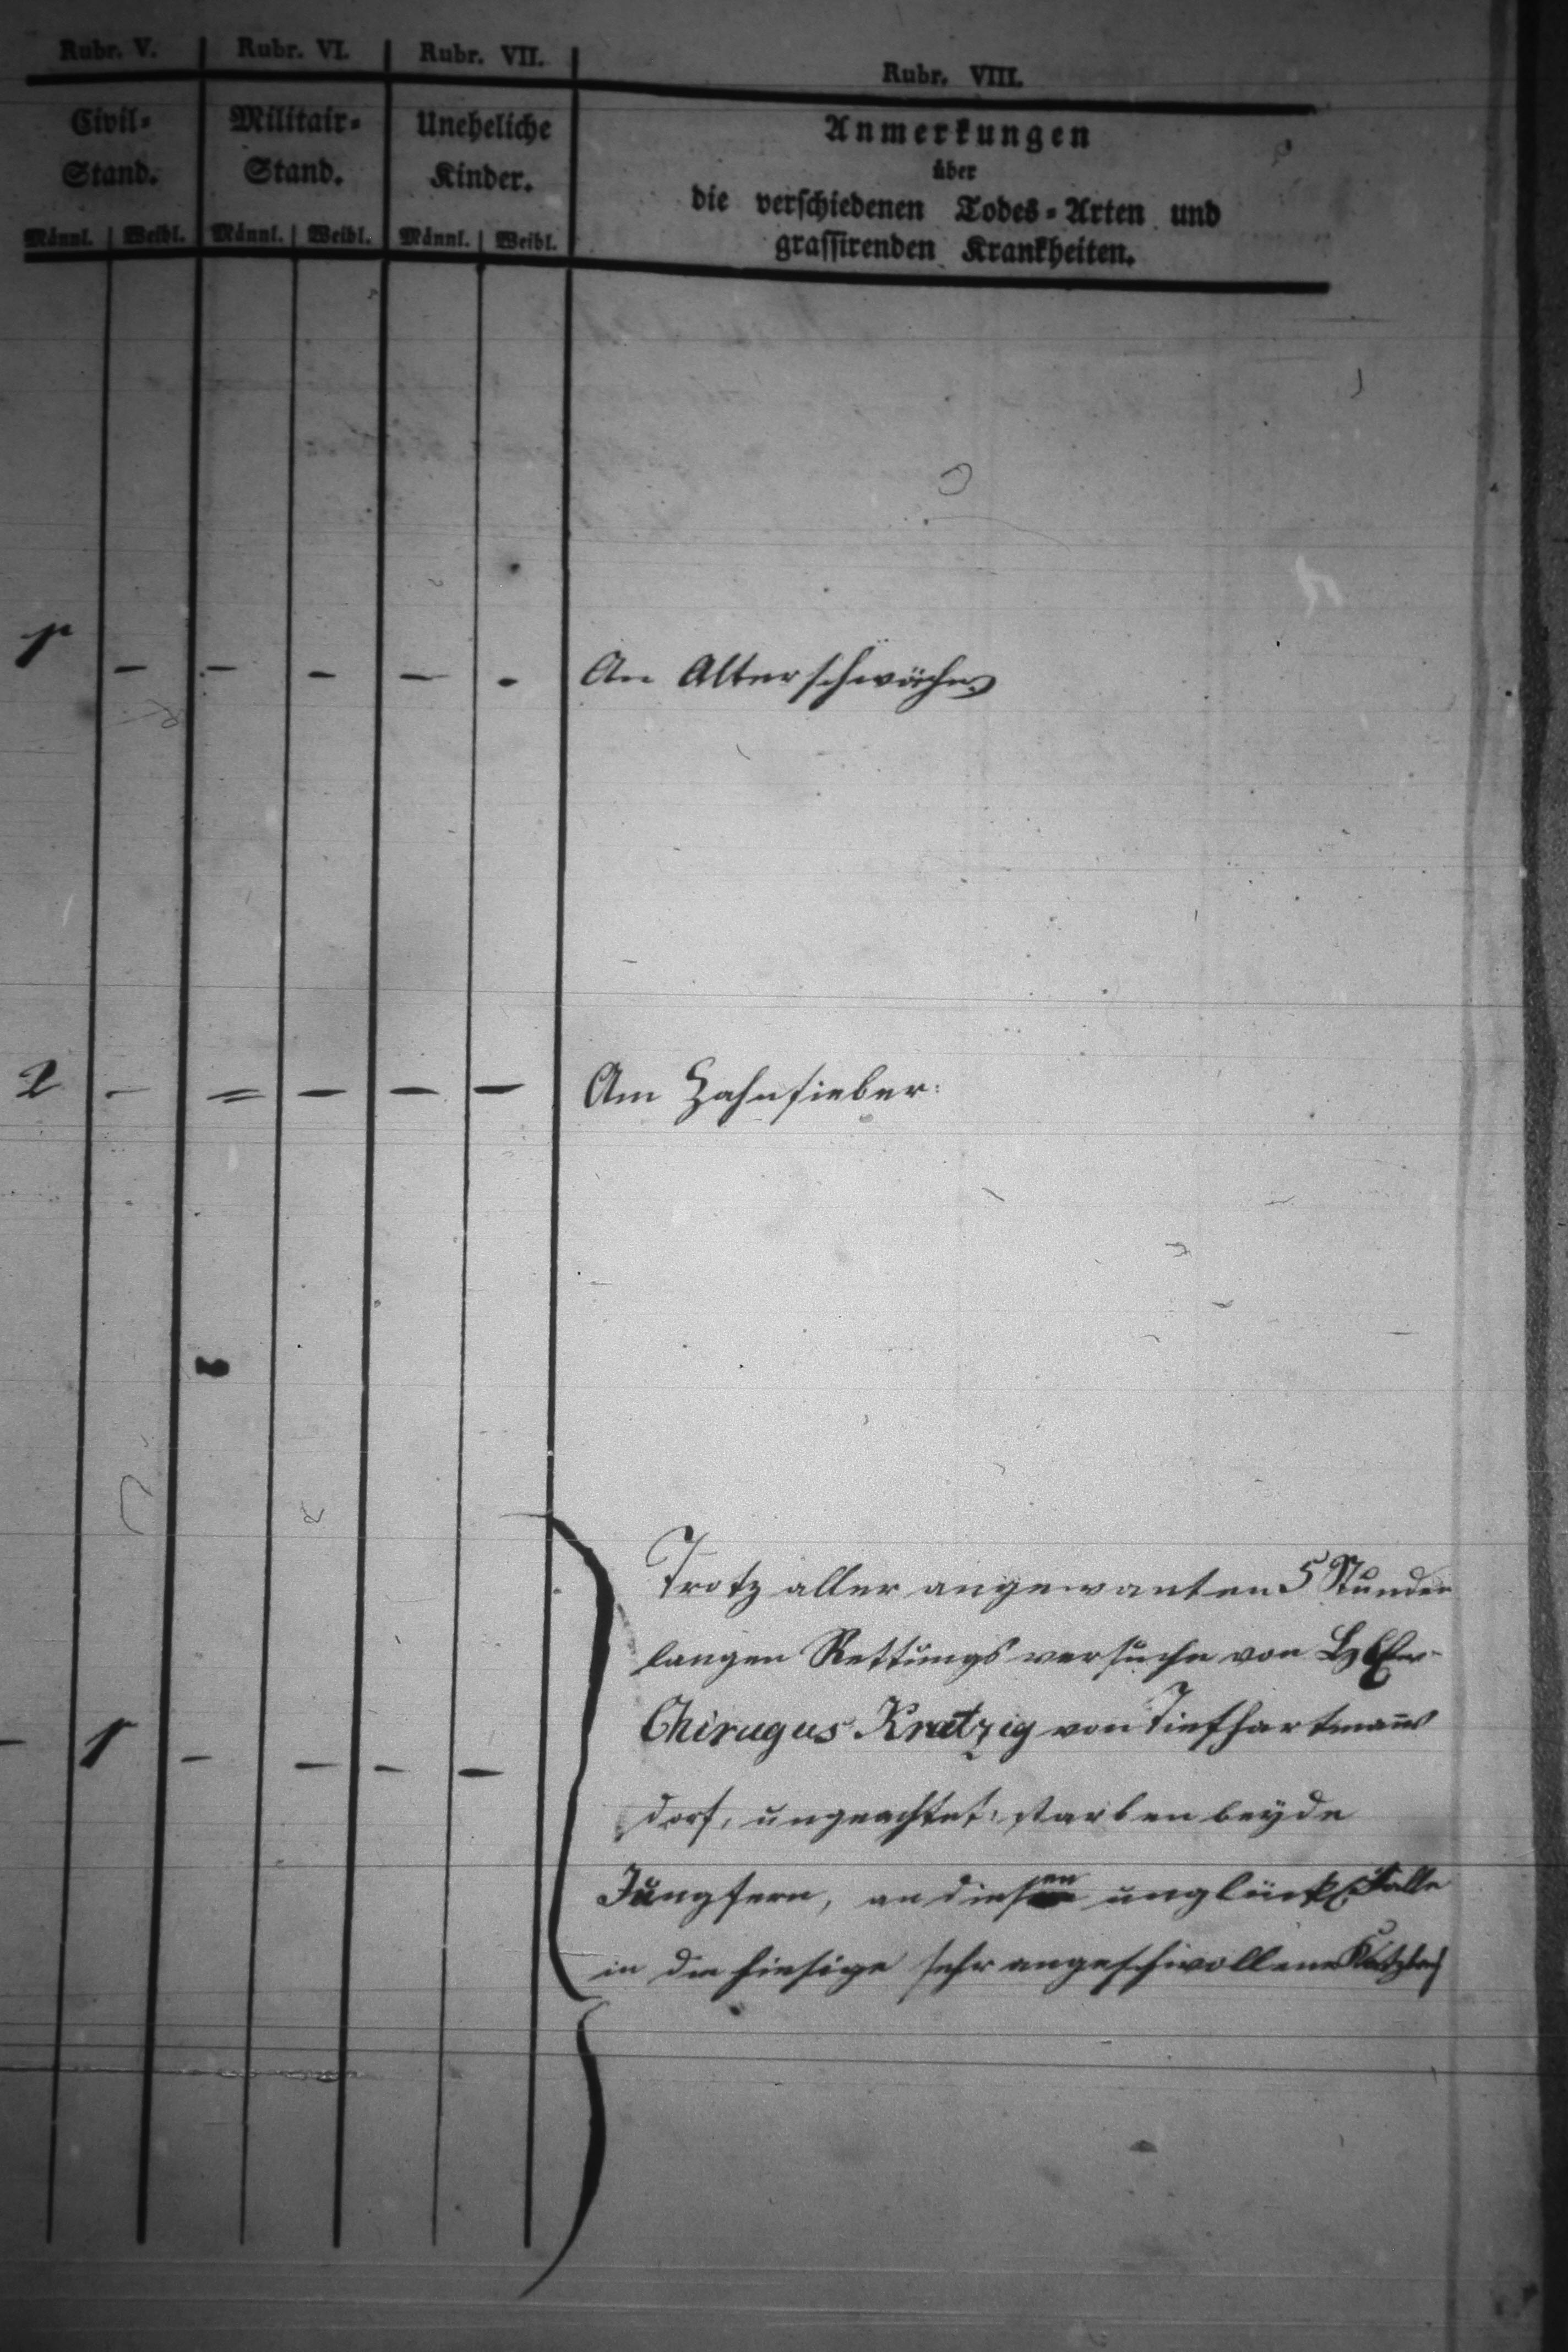 Rubr. V. Rubr. VI. Rubr. VII. Rubr. VIII.
Civil= Militair= Uneheliche Anmerkungen
Stand. Stand. Kinder. über
die verschiedenen Todes=Arten und
Männl. Weibl. Männl. Weibl. Männl. Weibl. grassirenden Krankheiten.
1 – – – – - An Alterschwäche
2 - = – – – Am Zahnfieber:
Trotz aller angewanten 5 Stunden
langen Rettungsversuche von
Chirugus Kratzig von Tiefhartmans
dorf, ungeachtet: starben beyde
– 1 – – – –
Jüngfern, an diesen unglücks Falle
in die hiesige sehr angeschwollene Katzbach